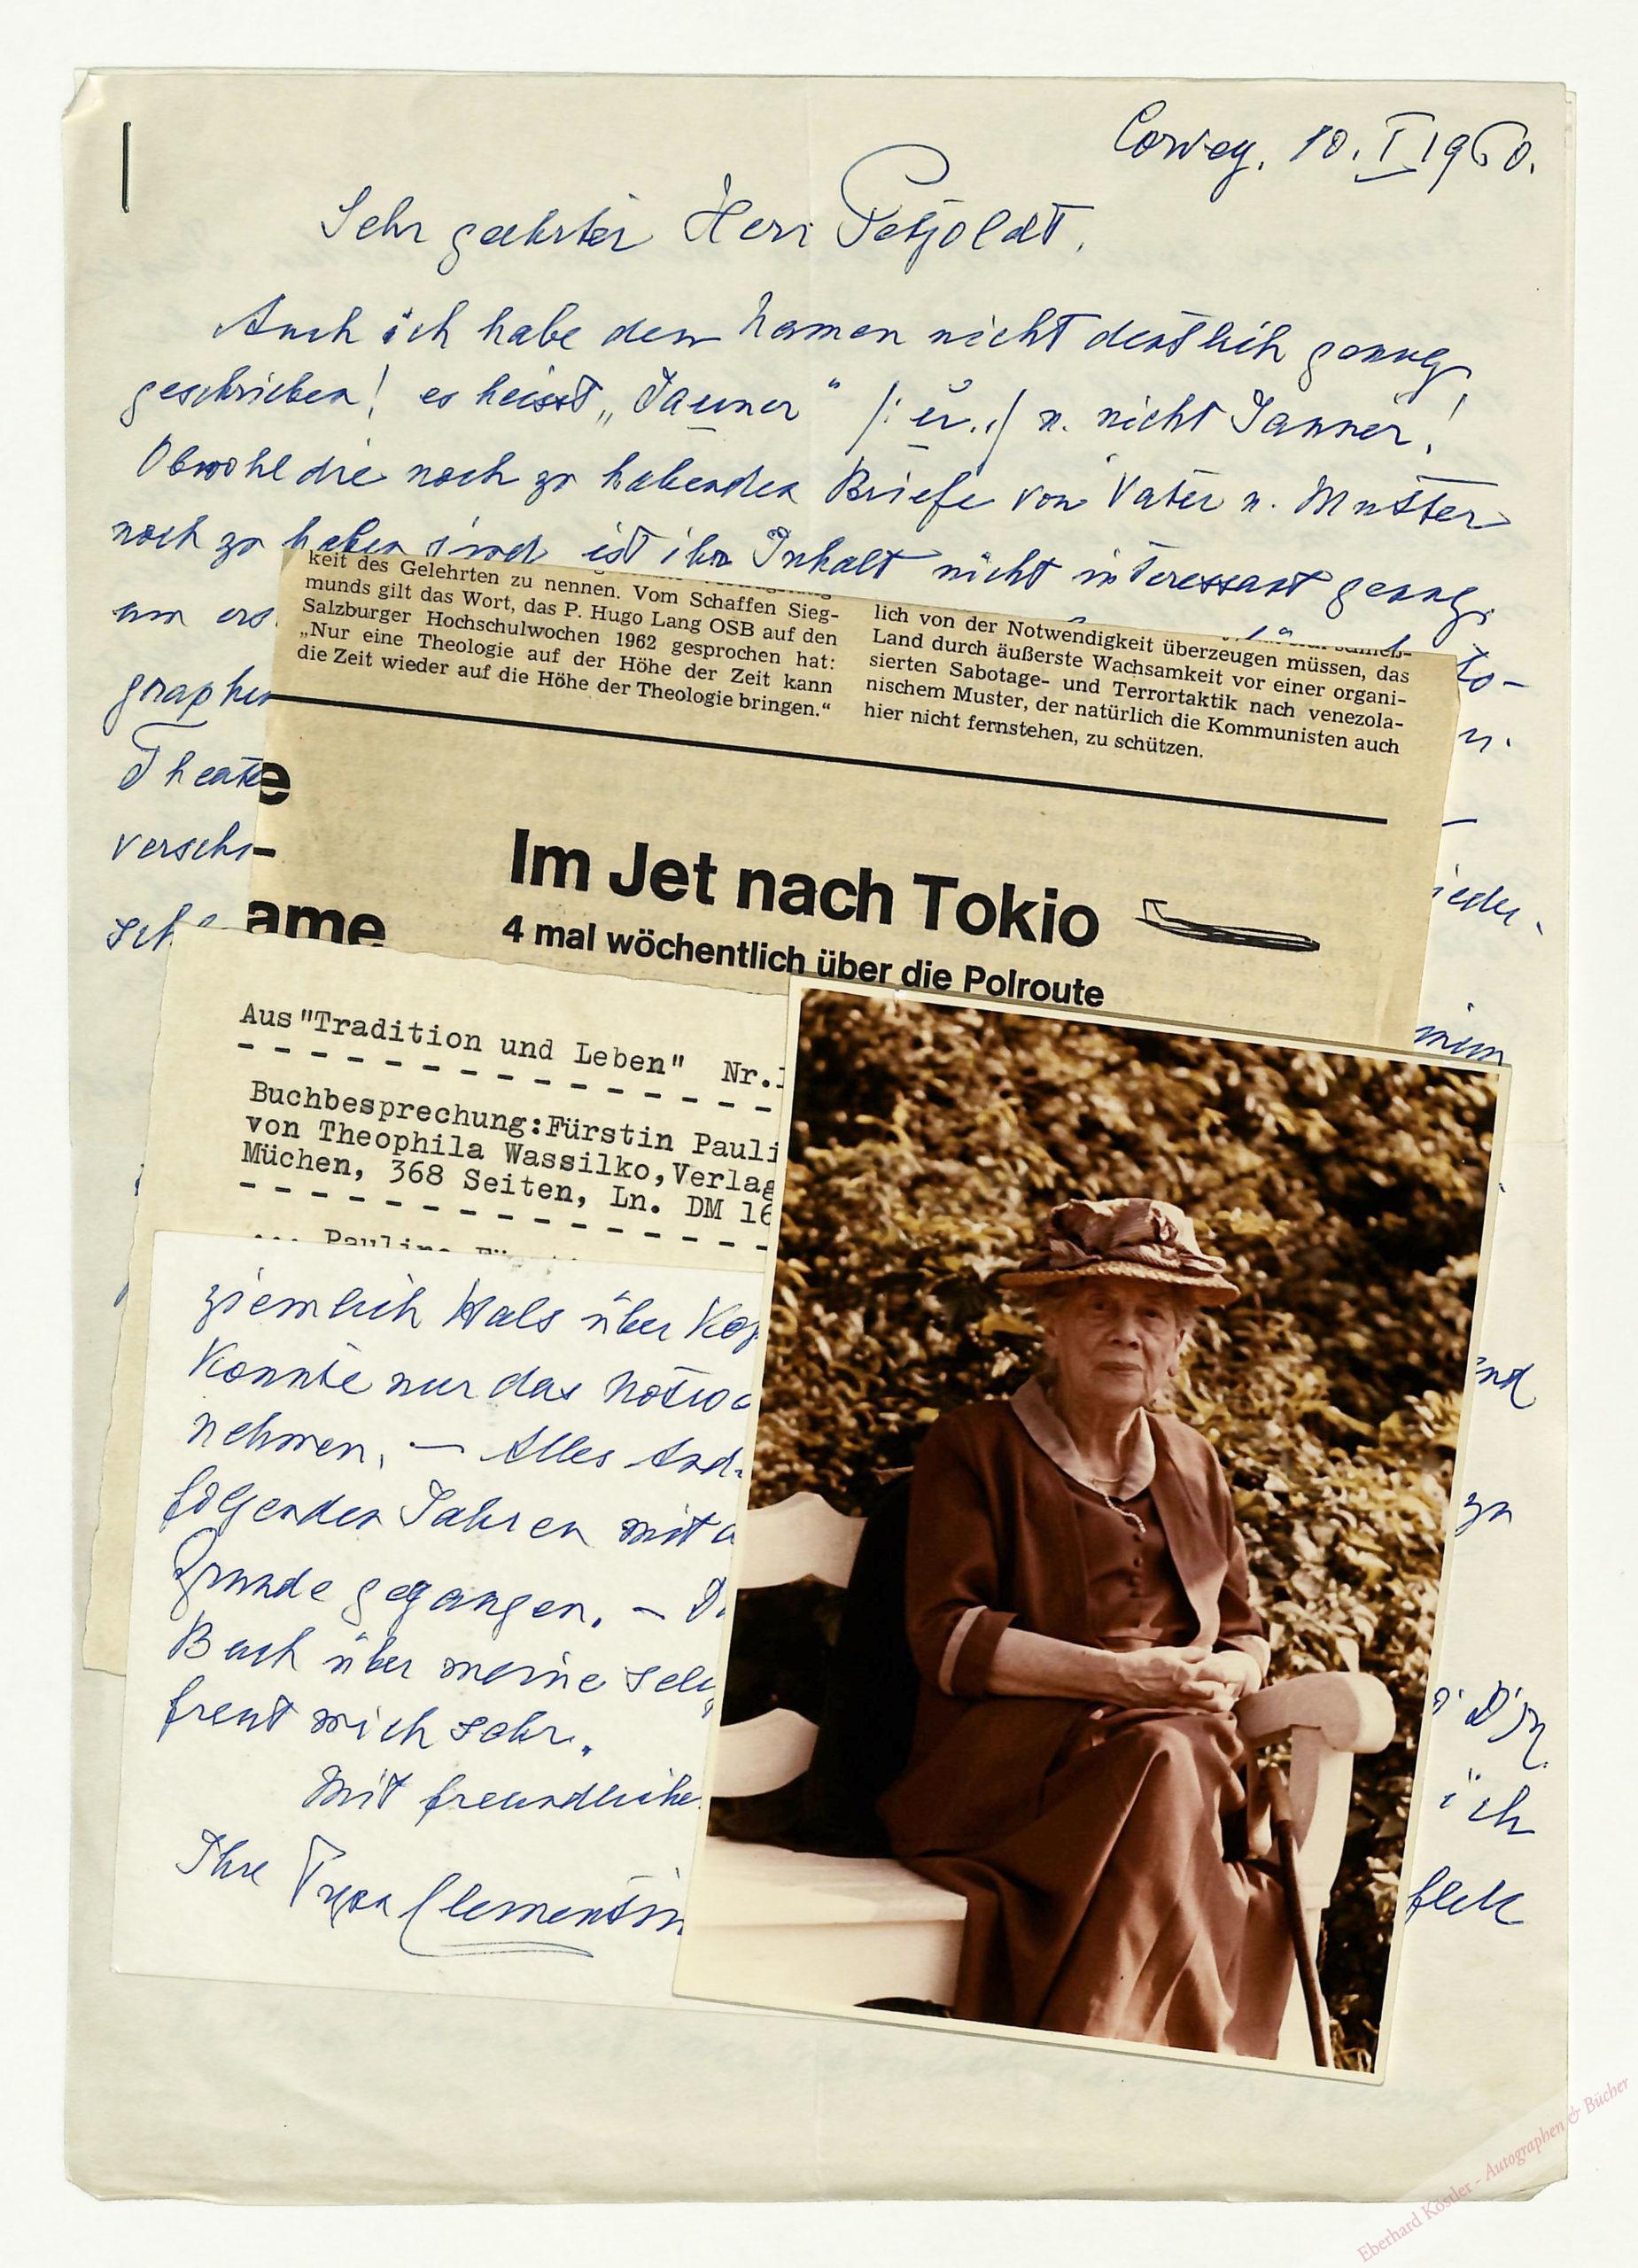 Corvey, 10. I 1960.
Sehr geehrter Herr Petzoldt.
Auch ich habe den Namen nicht deutlich genug
geschrieben! es heisst „Jauner" /: u :/ u. nicht Janner!
Obwohl die noch zu habenden Briefe von Vater u. Mutter
noch zu haben sind, ist ihr Inhalt nicht interessant genug
um
to-
u.
Theate
sch
mim
end
zu
ich
fleck
keit des Gelehrten zu nennen. Vom Schaffen Sieg-
munds gilt das Wort, das P. Hugo Lang OSB auf den
Salzburger Hochschulwochen 1962 gesprochen hat:
„Nur eine Theologie auf der Höhe der Zeit kann
die Zeit wieder auf die Höhe der Theologie bringen."
lich von der Notwendigkeit überzeugen müssen, das
Land durch äußerste Wachsamkeit vor einer organi-
sierten Sabotage- und Terrortaktik nach venezola-
nischem Muster, der natürlich die Kommunisten auch
hier nicht fernstehen, zu schützen.
e
-
ame
Im Jet nach Tokio
4 mal wöchentlich über die Polroute
Aus "Tradition und Leben" Nr.
Buchbesprechung:Fürstin Pauli
von Theophila Wassilko,Verlag
Müchen, 368 Seiten, Ln. DM 16
... Pauline
ziemlich Hals über Kop
Konnte nur das Notwe
nehmen. — Alles And
folgenden Jahren mit
Grunde gegangen. —
Buch über meine sel
freut mich sehr.
Mit freundliche
Ihre Clementin
Eberhard Köstler - Autographen & Bücher